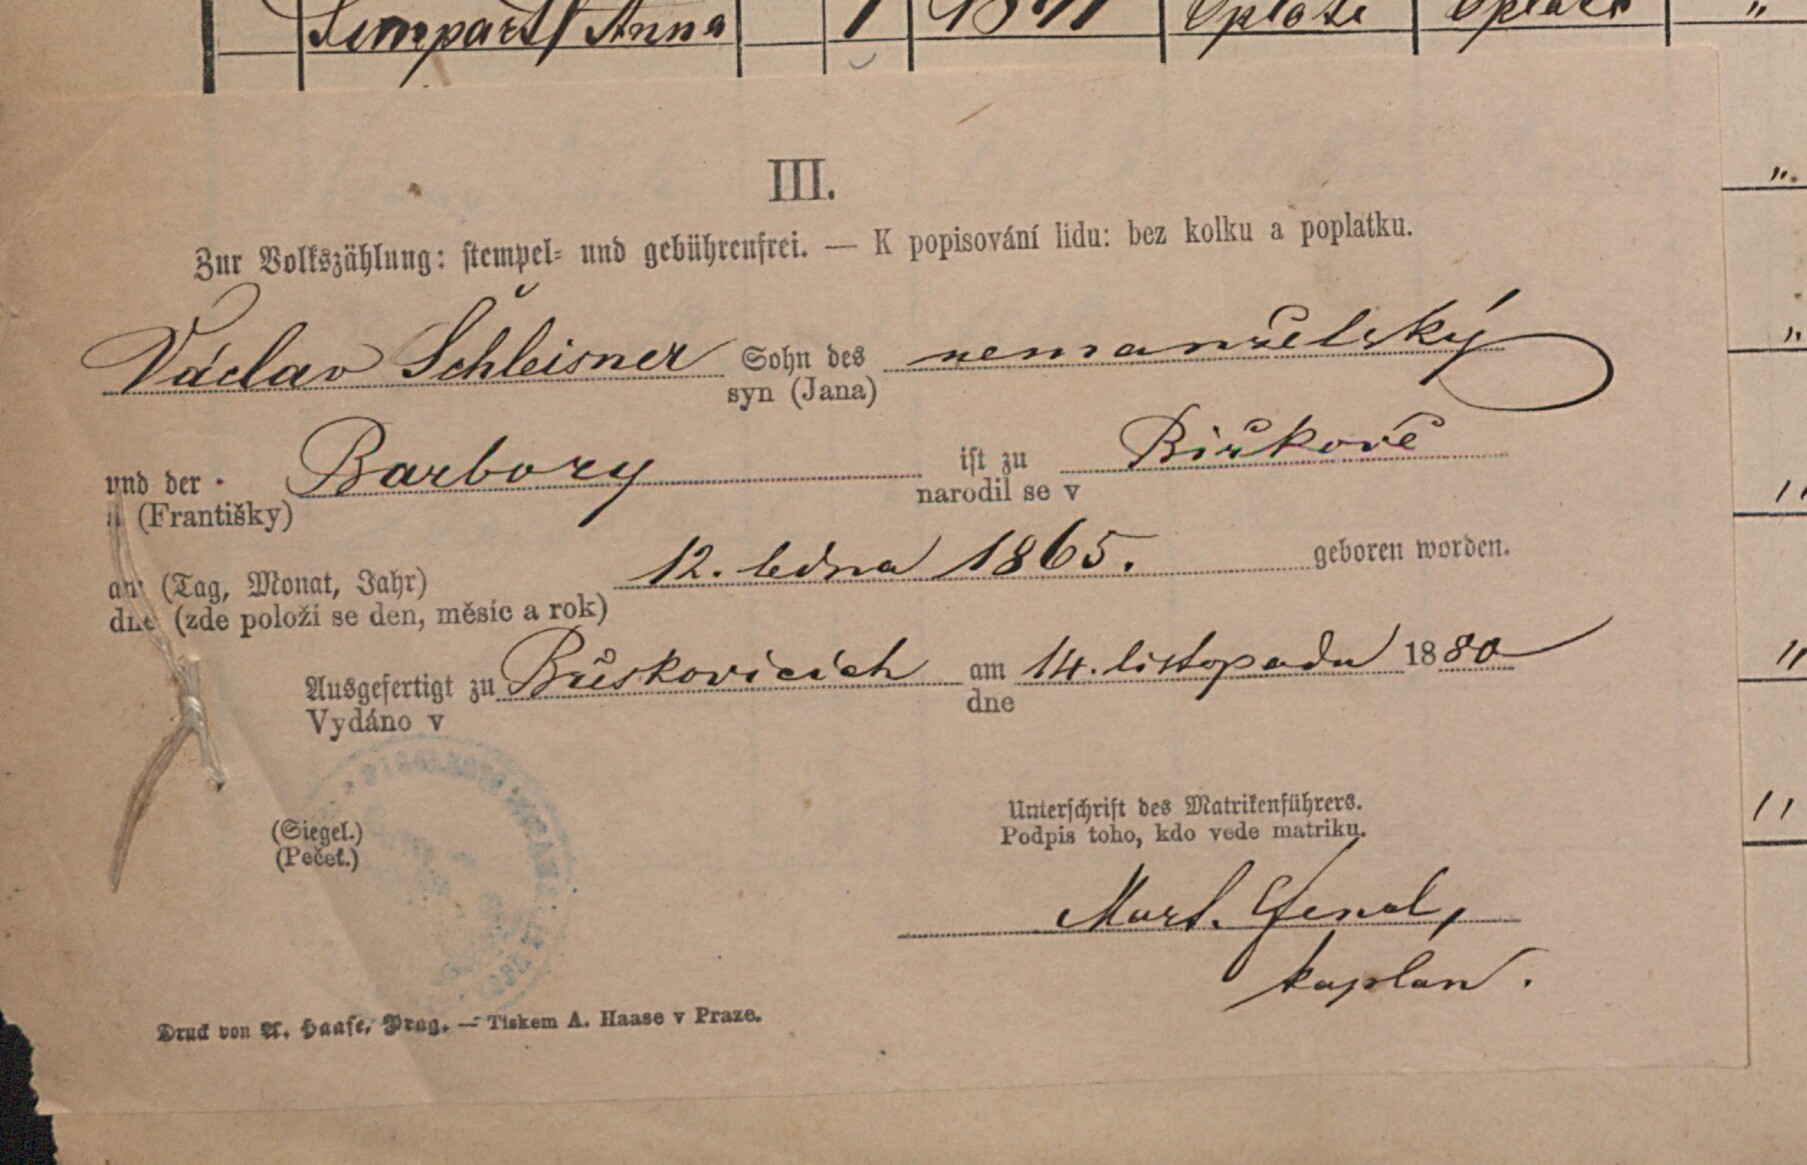 Anna 1
III.
Zur Volkszählung: stempel- und gebührenfrei. — K popisování lidu: bez kolku a poplatku.
Václav Schleisner Sohn des nemanželský
syn (Jana)
und der Barbory ist zu Biřkově
a (Františky) narodil se v
am (Tag, Monat, Jahr) 12. ledna 1865. geboren worden.
dne (zde položí se den, měsíc a rok)
Ausgefertigt zu Břeskovicích am 14. listopadu 1880
Vydáno v dne
(Siegel.) Unterschrift des Matrikenführers.
(Pečeť.) Podpis toho, kdo vede matriku.
Mart.
kaplan.
Druck von A. Haase, Prag. — Tiskem A. Haase v Praze.